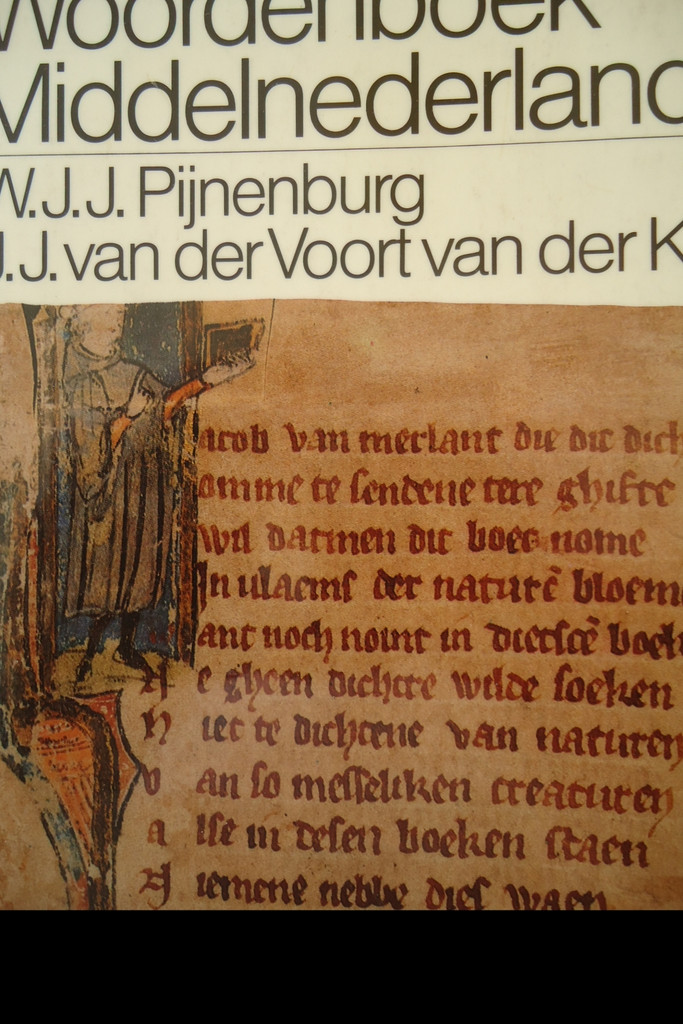 Woordenboek
Middelnederland
W.J.J. Pijnenburg
J.J. van der Voort van der K
acob van merlant die dit dich
omme te sendene tere ghifte
wil datmen dit boec nome
In vlaems der naturē bloeme
ant noch noint in dietscē boek
N e gheen dichtre wilde soeken
N iet te dichtene van naturen
v an so messeliken creaturen
a lse in desen boeken staen
N iemene hebbe dies waen